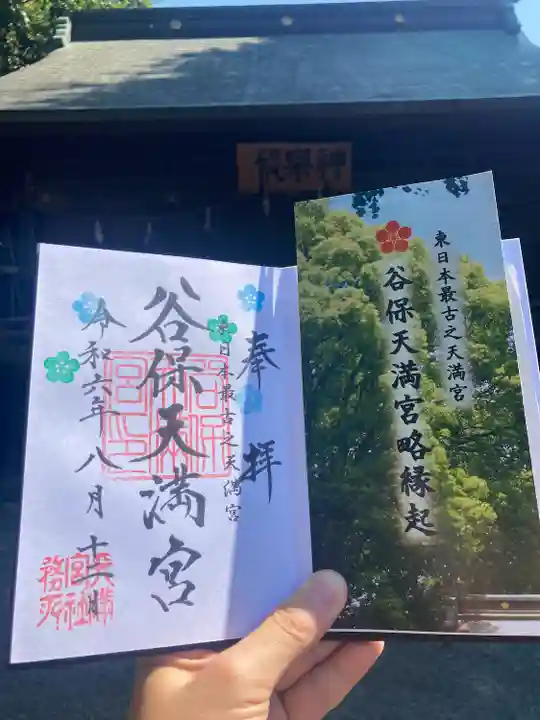 奉拝
東日本最古之天満宮
谷保天満宮
令和六年八月十
東日本最古之天満宮
谷保天満宮略縁起